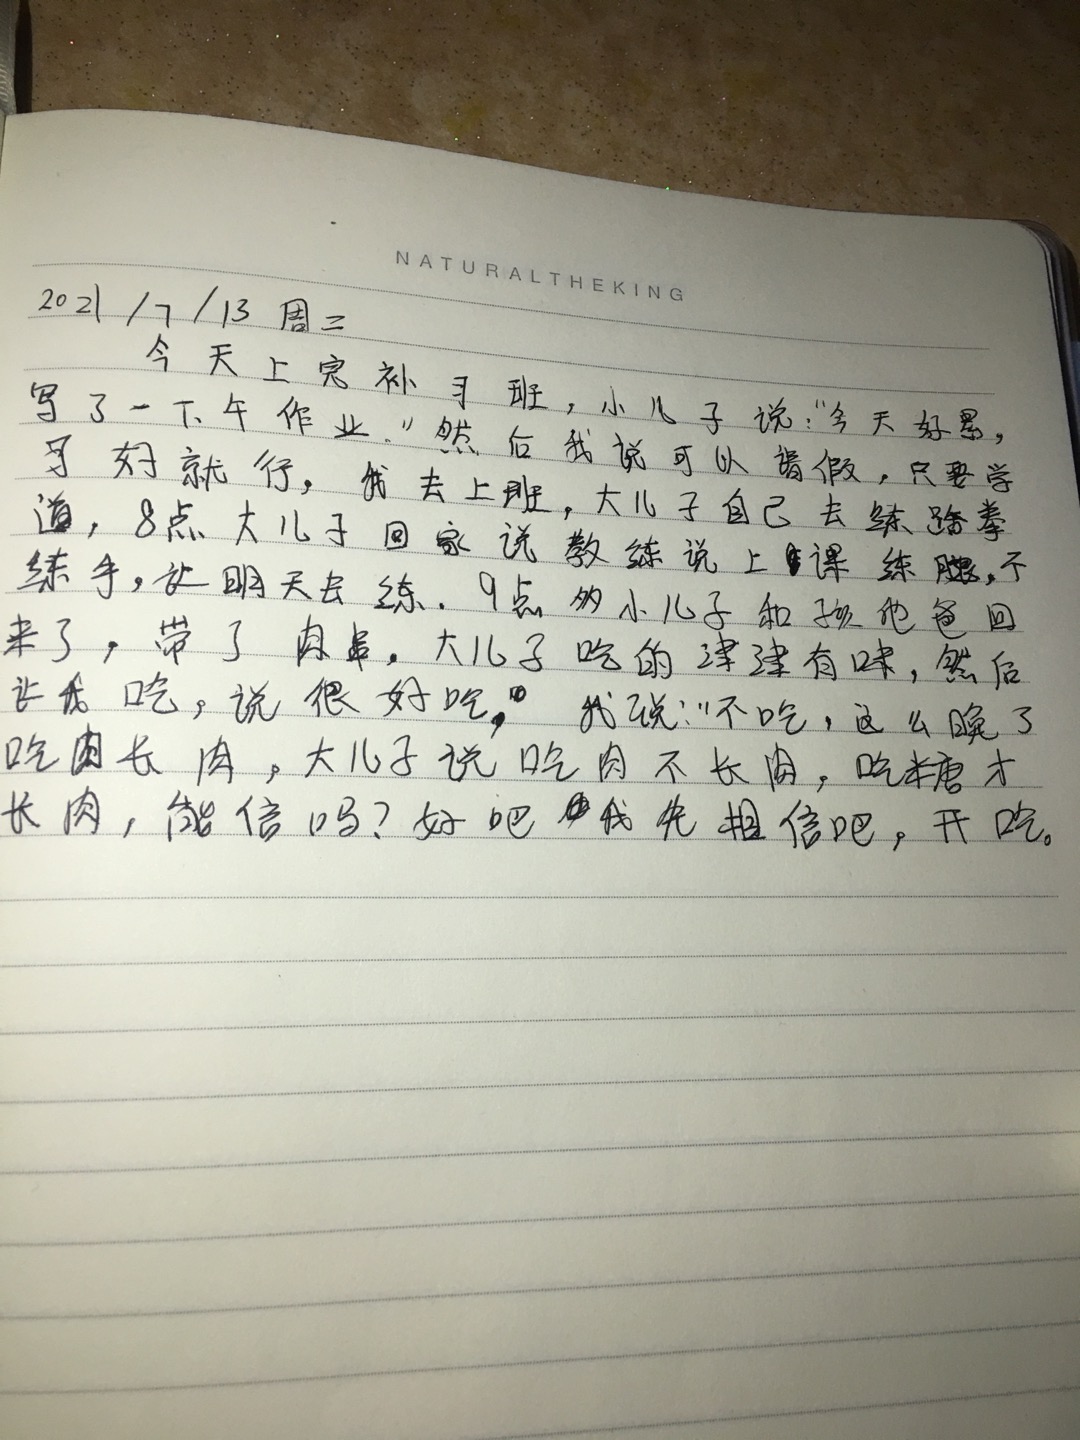 NATURALTHEKING
2021/7/13 周二
今天上完补习班，小儿子说：“今天好累，
写了一下午作业.”然后我说可以请假，只要学
习好就行，我去上班，大儿子自己去练跆拳
道，8点大儿子回家说教练说上课练腿，不
练手，让明天去练.9点多小儿子和孩他爸回
来了，带了肉串，大儿子吃的津津有味，然后
让我吃，说很好吃，” 我说：“不吃，这么晚了
吃肉长肉，大儿子说吃肉不长肉，吃糖才
长肉，能信吗？好吧我先相信吧，开吃。